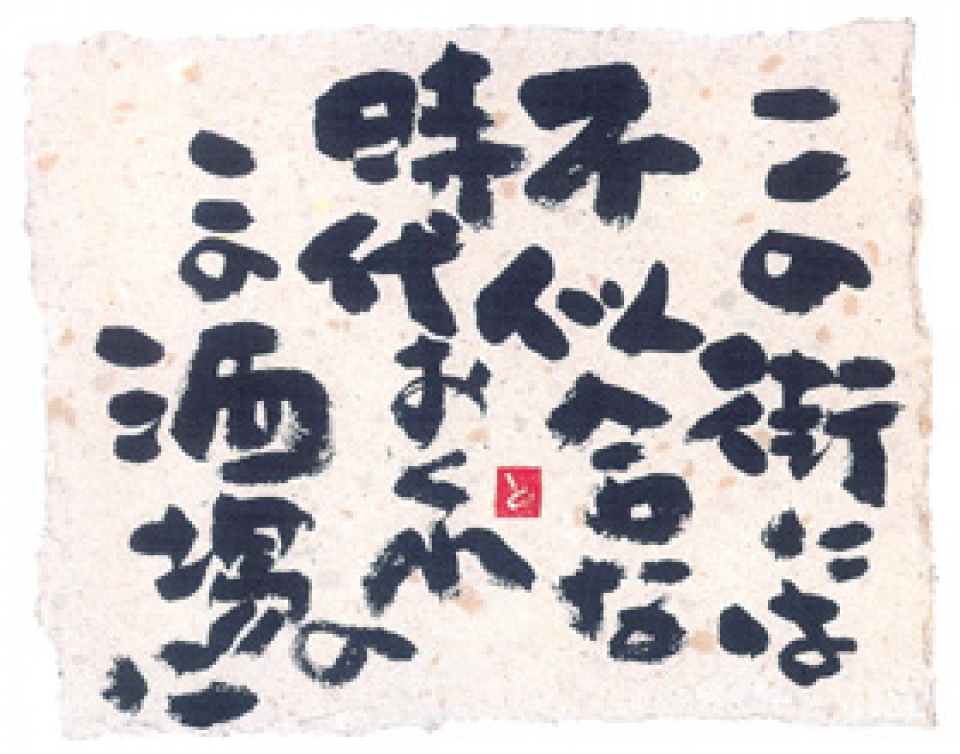 この街には
不似合な
時代おくれの
この酒場に
と